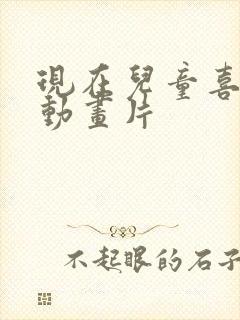 現在兒童喜
動畫片
不起眼的石子